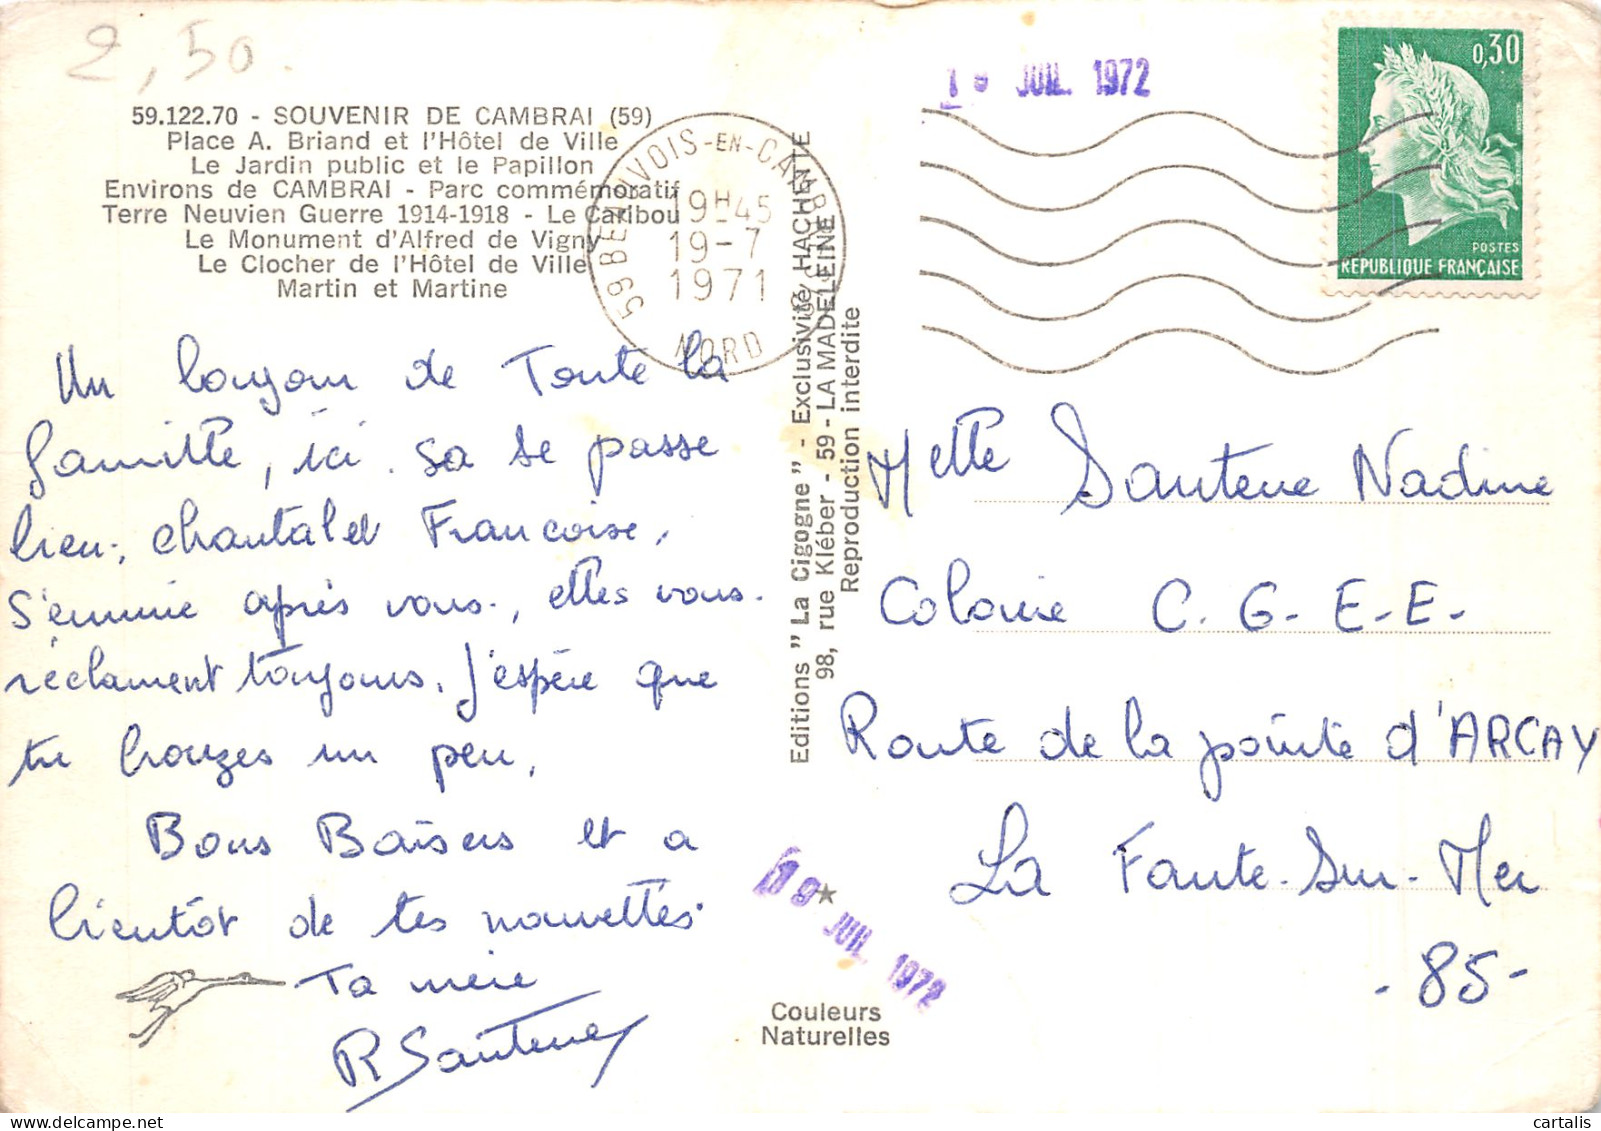 2,50.
59.122.70 - SOUVENIR DE CAMBRAI (59)
Place A. Briand et l'Hôtel de Ville
Le Jardin public et le Papillon
Environs de CAMBRAI - Parc commémoratif
Terre Neuvien Guerre 1914-1918 - Le Caribou
Le Monument d'Alfred de Vigny
Le Clocher de l'Hôtel de Ville
Martin et Martine
59 BEAUVOIS-EN-CAMBRESIS
19H45
19-7
1971
NORD
19 JUIL. 1972
0,30
POSTES
REPUBLIQUE FRANÇAISE
Un bonjour de Toute la
famille, ici. sa se passe
bien, chantal et Francoise,
S'ennuie après vous, elles vous.
réclament toujours. J'espère que
tu bronzes un peu,
Bons Baisers et a
bientôt de tes nouvelles.
Ta mère
R Santerne
Editions " La Cigogne " - Exclusivité HACHETTE
98, rue Kléber - 59 - LA MADELEINE
Reproduction interdite
19 JUIL. 1972
Couleurs
Naturelles
Melle Santerne Nadine
Colonie C. G. E. E.
Route de la pointe d'ARCAY
La Faute-Sur-Mer
- 85 -
delcampe.net
cartalis